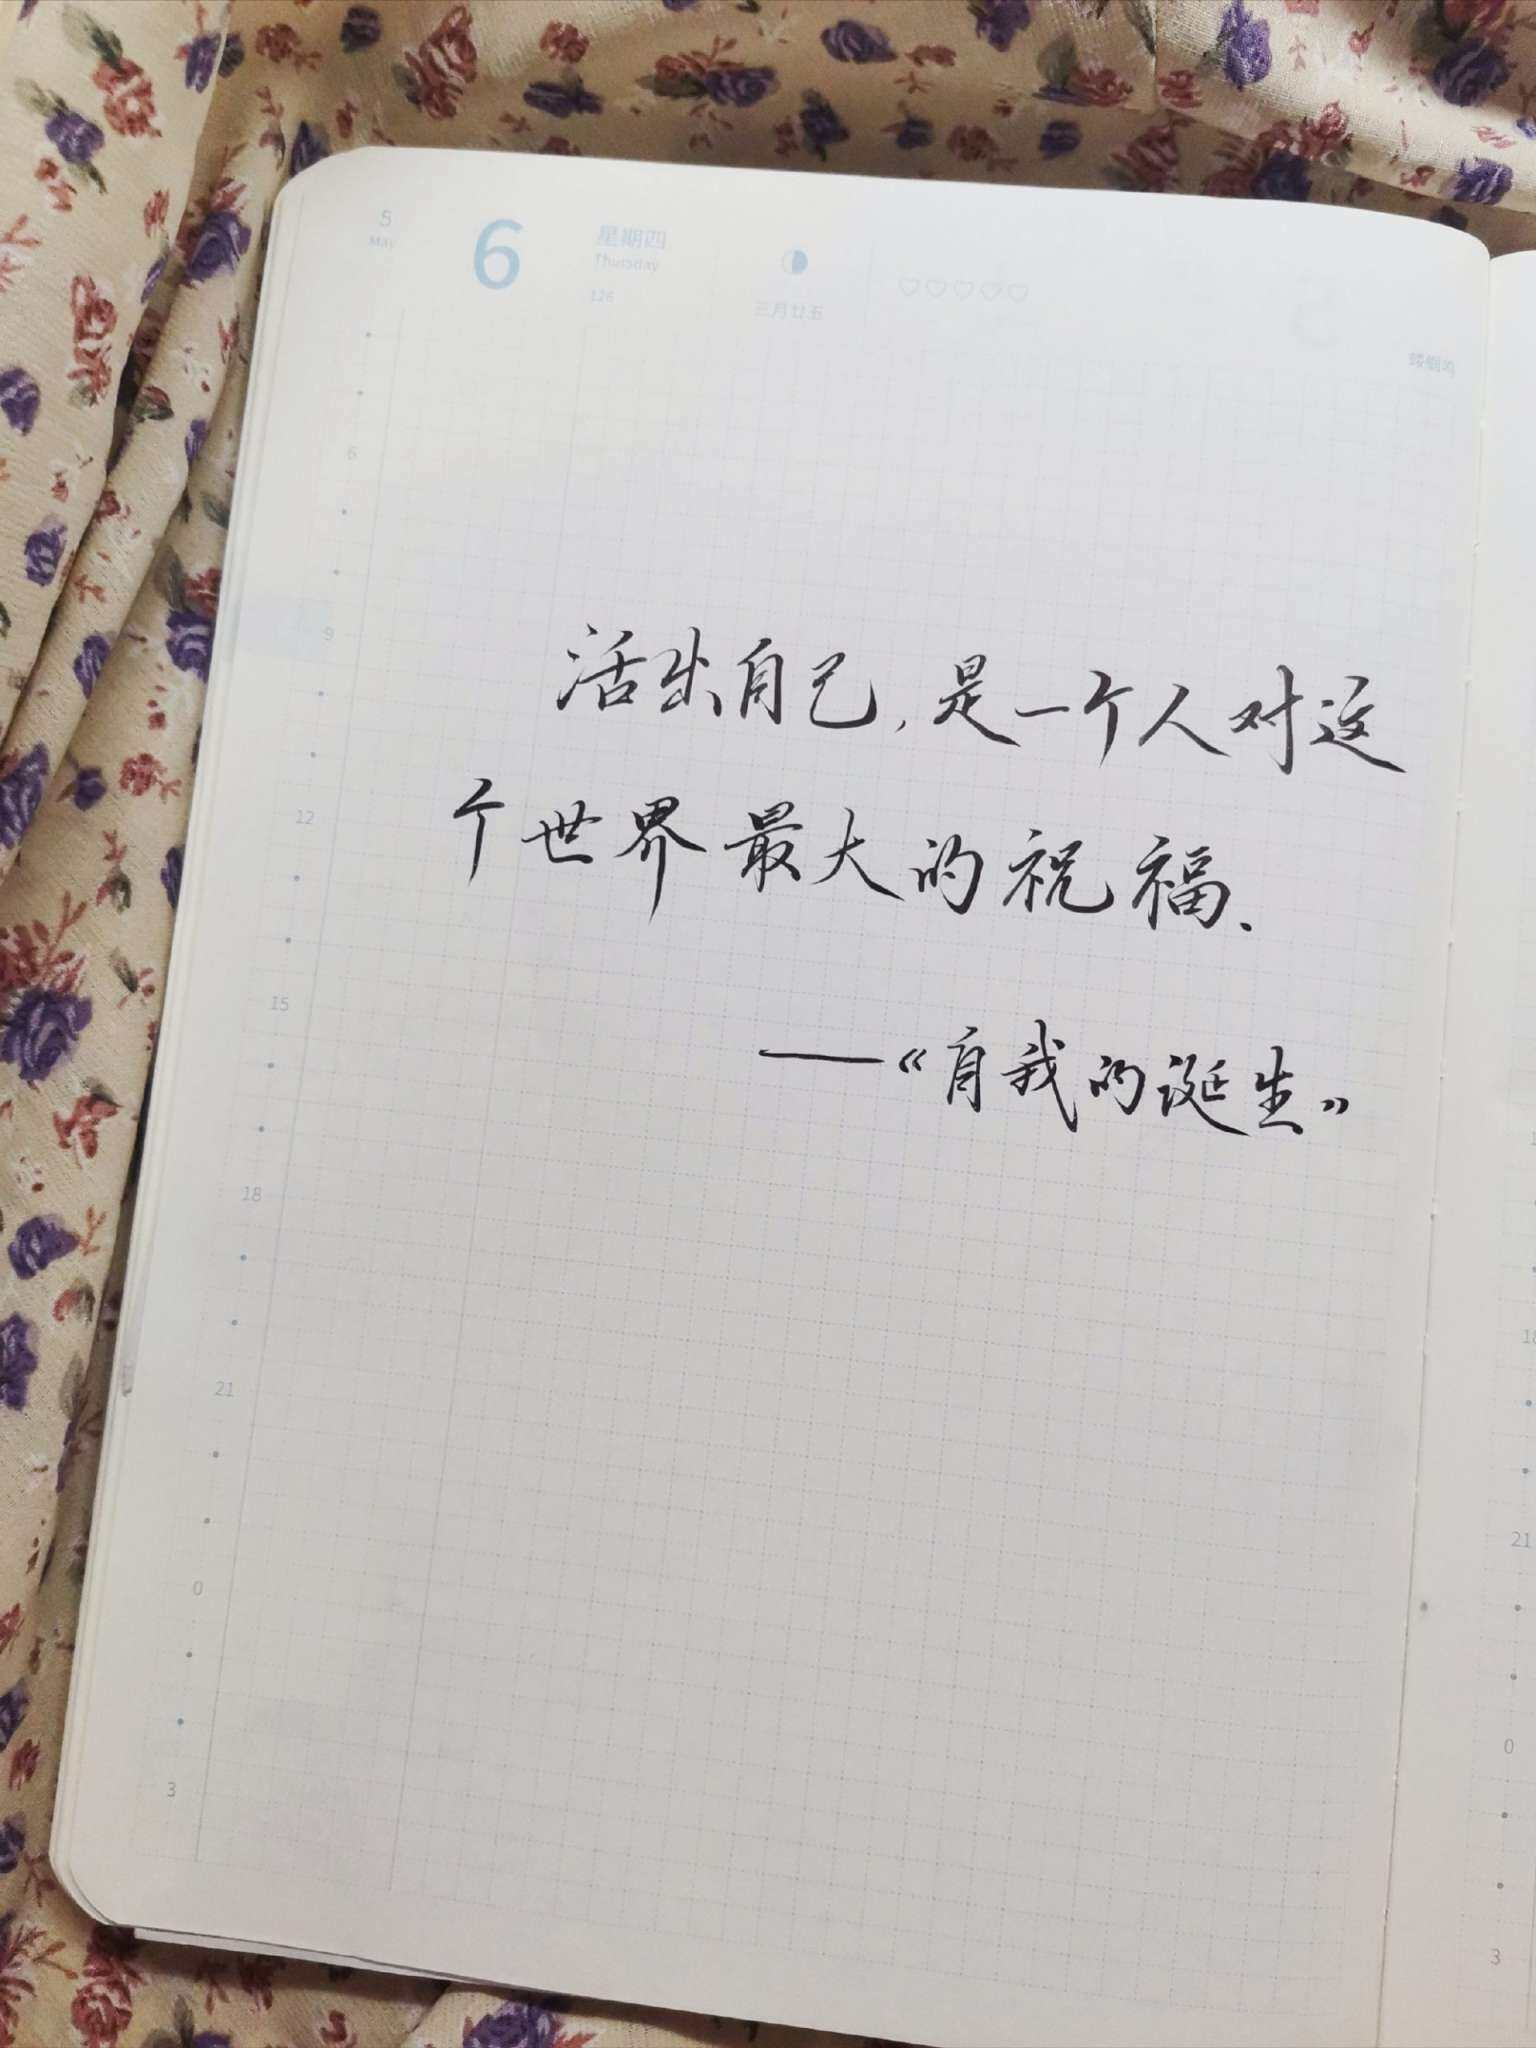 5
May
6
星期四
Thursday
126
三月廿五
活出自己,是一个人对这
个世界最大的祝福、
——《自我的诞生》
6
9
12
15
18
21
0
3
18
21
0
3